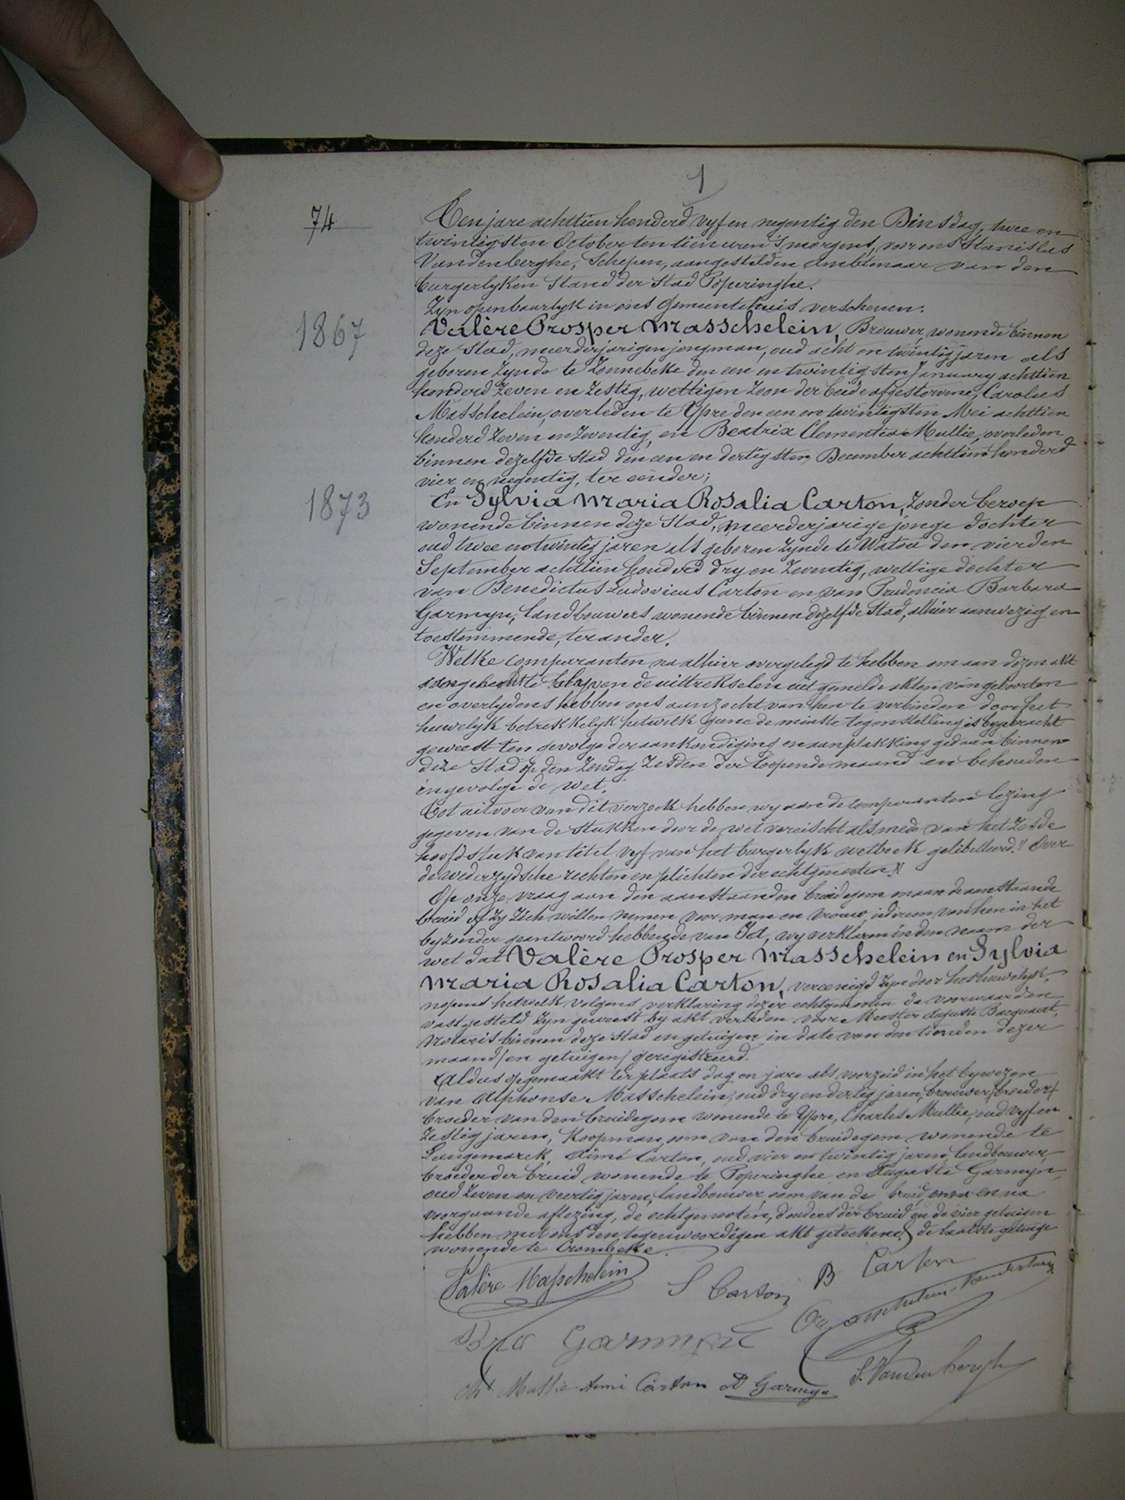 1
74
Ten jare achttien honderd vyf en negentig den Dinsdag, twee en
twintigsten October ten tien uren 's morgens, voor ons Stanislas
Vandenberghe, Schepen, aangestelden Ambtenaar van den
burgerlyken Stand der Stad Poperinghe.
Zyn openbaarlyk in ons Gemeentehuis verschenen:
1867
Valère Prosper Masschelein, Brouwer, wonende binnen
deze Stad, meerderjarigen jongman, oud acht en twintig jaren als
geboren zynde te Zonnebeke den een en twintigsten January achttien
honderd zeven en zestig, wettigen zoon der beide afgestorvene, Carolus
Masschelein, overleden te Ypre den een en twintigsten Mei achttien
honderd zeven en zeventig, en Beatrix Clementia Mullie, overleden
binnen dezelfde stad den een en dertigsten December achttien honderd
vier en negentig, ter eender;
1873
En Sylvia Maria Rosalia Carton, zonder beroep
wonende binnen deze Stad, meerderjarige jonge dochter
oud twee en twintig jaren als geboren zynde te Watou den vierden
September achttien honderd dry en zeventig, wettige dochter
van Benedictus Ludovicus Carton en van Prudencia Barbara
Garmyn, landbouwers wonende binnen dezelfde Stad, alhier aanwezig en
toestemmende, ter ander.
Welke comparanten na alhier overgelegd te hebben om aan dezen akt
aangehecht te blyven de uittrekselen uit gemelde akten van geboorten
en overlydens hebben ons aanzocht van hen te verbinden door het
huwelyk betrekkelyk hetwelk geene de minste tegenstelling is bygebracht
geweest ten gevolge der aankondiging en aanplakking gedaan binnen
deze Stad op den Zondag zesden der loopende maand en behouden
ingevolge de wet.
Tot uitvoer van dit verzoek hebben wy aan de comparanten lezing
gegeven van de stukken door de wet vereischt alsmede van het zesde
hoofdstuk van titel vyf van het burgerlyk wetboek gelibelleerd: "Over
de wederzydsche rechten en plichten der echtgenooten."
Op onze vraag aan den aanstaanden bruidegom en aan de aanstaande
bruid of zy zich willen nemen voor man en vrouw, iedereen van hen in het
byzonder geantwoord hebbende van Ja, wy verklaren in den naam der
wet dat Valère Prosper Masschelein en Sylvia
Maria Rosalia Carton, vereenigd zyn door het huwelyk,
nopens hetwelk volgens verklaring dezer echtgenooten de voorwaarden
vastgesteld zyn geweest by akt verleden voor Meester Auguste
Notaris binnen deze Stad en getuigen in date van den tienden dezer
maand, en getuigen, geregistreerd.
Aldus opgemaakt ter plaats dag en jare als voorzeid in het bywezen
van Alphonse Masschelein, oud dry en dertig jaren, brouwer, broeder
broeder van den bruidegom wonende te Ypre, Charles Mullie, oud vyf en
zestig jaren, koopman, oom van den bruidegom wonende te
Langemarck, Aimé Carton, oud vier en twintig jaren, landbouwer,
broeder der bruid wonende te Poperinghe en Auguste Garmyn,
oud zeven en veertig jaren, landbouwer, oom van de bruid, en na
voorgaande aflezing, de echtgenooten, d'ouders der bruid en de vier getuigen
hebben met ons den tegenwoordigen akt geteekend, de laatste getuige
wonende te Crombeke.
Valère Masschelein S Carton B Carton
Garmyn
Ch. Mullie Aimé Carton A Garmyn S. Vandenberghe